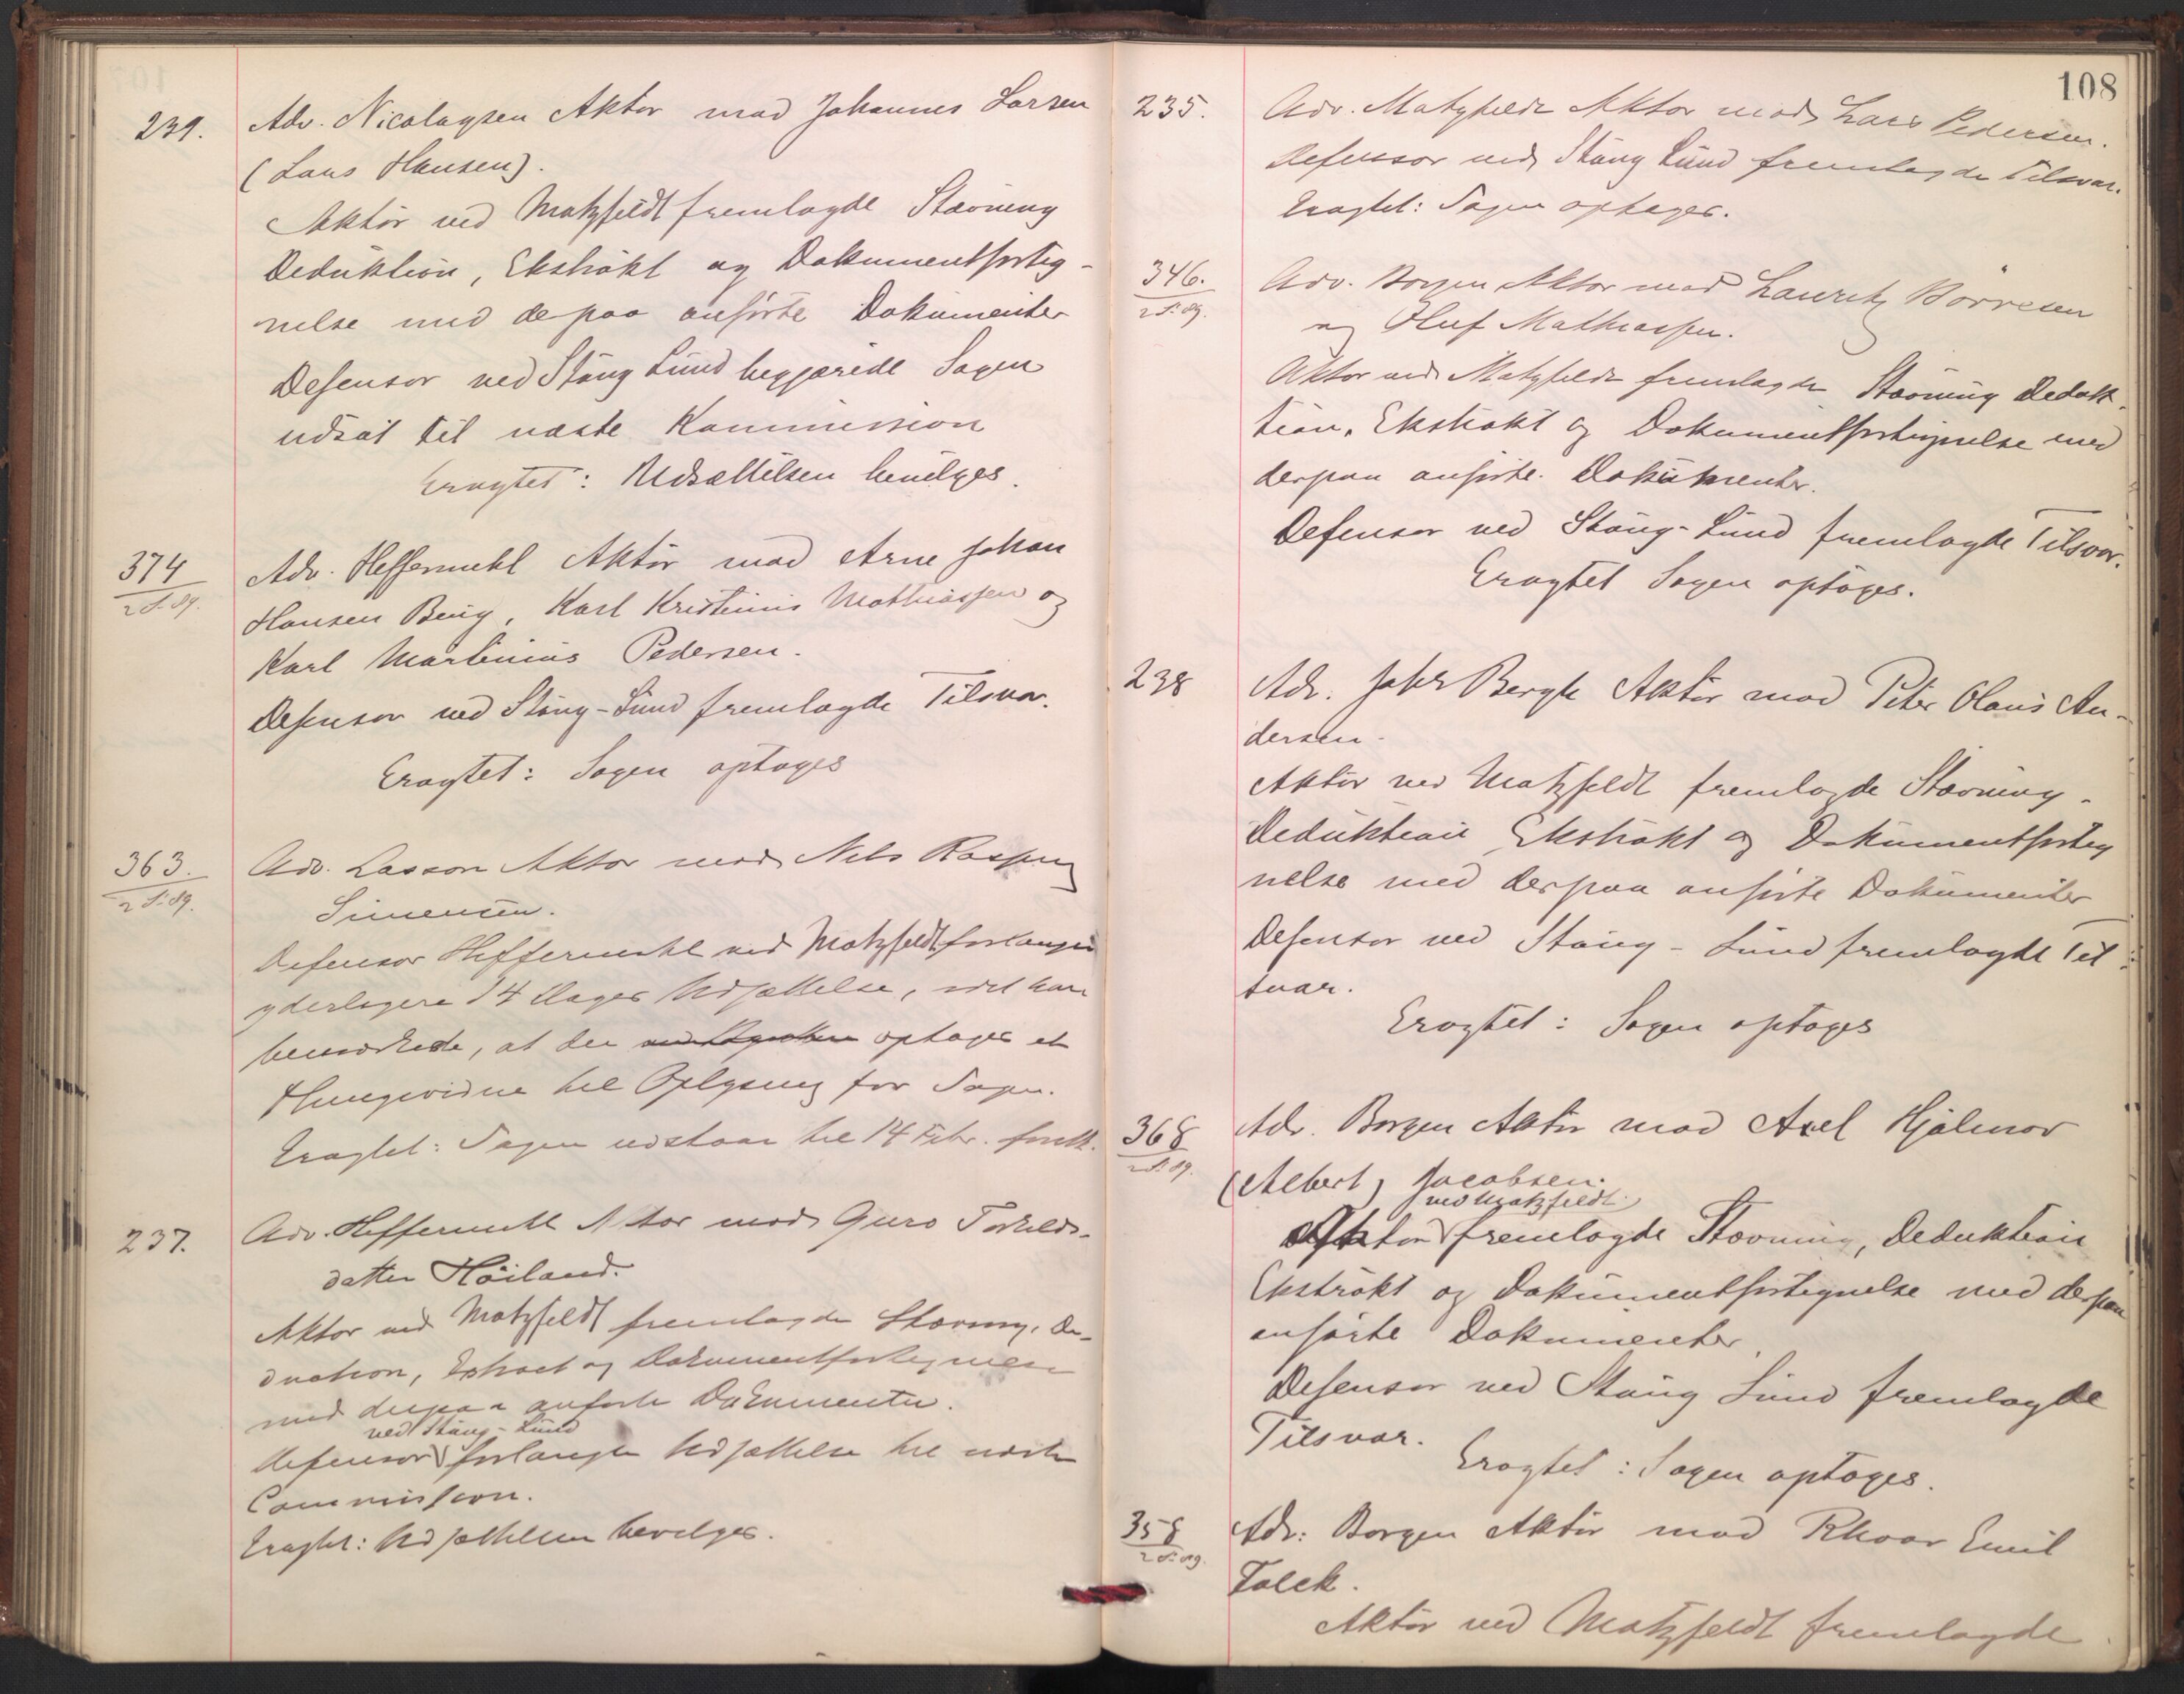 239. Adv. Nicolaysen Aktor mod Johannes Larsen
(Lars Hansen).
Aktor ved Matzfeldt fremlagde Stævning
Deduktion, Ekstrakt og Dokumentforteg-
nelse med de paa anførte Dokumenter
Defensor ved Stang Lund begjærede Sagen
udsat til næste Kommission
Eragtet: Udsættelsen bevilges.
374
2 S. 89.
Adv. Heffermehl Aktor mod Arne Johan
Hansen Berg, Karl Kristinius Mathiassen og
Karl Martinius Pedersen.
Defensor ved Stang-Lund fremlagde Tilsvar.
Eragtet: Sagen optages
363.
2 S. 89.
Adv. Lasson Aktor mod Nils
Simensen.
Defensor Heffermehl ved Matzfeldt forlangte
yderligere 14 Dages Udsættelse, idet han
bemærkede, at der optages et
Thingsvidne til Oplysning for Sagen.
Eragtet: Sagen udstaar til 14 Febr.
237. Adv. Heffermehl Aktor mod Guro Torkilds-
datter Höiland.
Aktor ved Matzfeldt fremlagde Stævning, De-
duction, Extract og Dokumentfortegnelse
med derpaa anførte Dokumenter.
ved Stang-Lund
Defensor forlangte Udsættelse til næste
Commission.
Eragtet: Udsættelsen bevilges.
108
235. Adv. Matzfeldt Aktor mod Lars Pedersen.
Defensor ved Stang Lund fremlagde Tilsvar.
Eragtet: Sagen optages.
346.
2 S. 89.
Adv. Borgen Aktor mod Lauritz Börresen
og Oluf Mathiassen.
Aktor ved Matzfeldt fremlagde Stævning Deduk-
tion, Ekstrakt og Dokumentfortegnelse med
derpaa anførte Dokumenter.
Defensor ved Stang-Lund fremlagde Tilsvar.
Eragtet Sagen optages.
238 Adv. Johs Bergh Aktor mod Peter Olaus An-
dersen.
Aktor ved Matzfeldt fremlagde Stævning-
Deduktion Ekstrakt og Dokumentforteg
nelse med derpaa anførte Dokumenter
Defensor ved Stang-Lund fremlagde Til-
svar.
Eragtet: Sagen optages
368
2 S. 89.
Adv. Borgen Aktor mod Axel Hjalmar
(Albert) Jacobsen.
ved Matzfeldt
Aktor fremlagde Stævning, Deduktion
Ekstrakt og Dokumentfortegnelse med derpaa
anførte Dokumenter.
Defensor ved Stang Lund fremlagde
Tilsvar.
Eragtet: Sagen optages.
358
2 S. 89.
Adv. Borgen Aktor mod Rhoar Emil
Falck.
Aktor ved Matzfeldt fremlagde